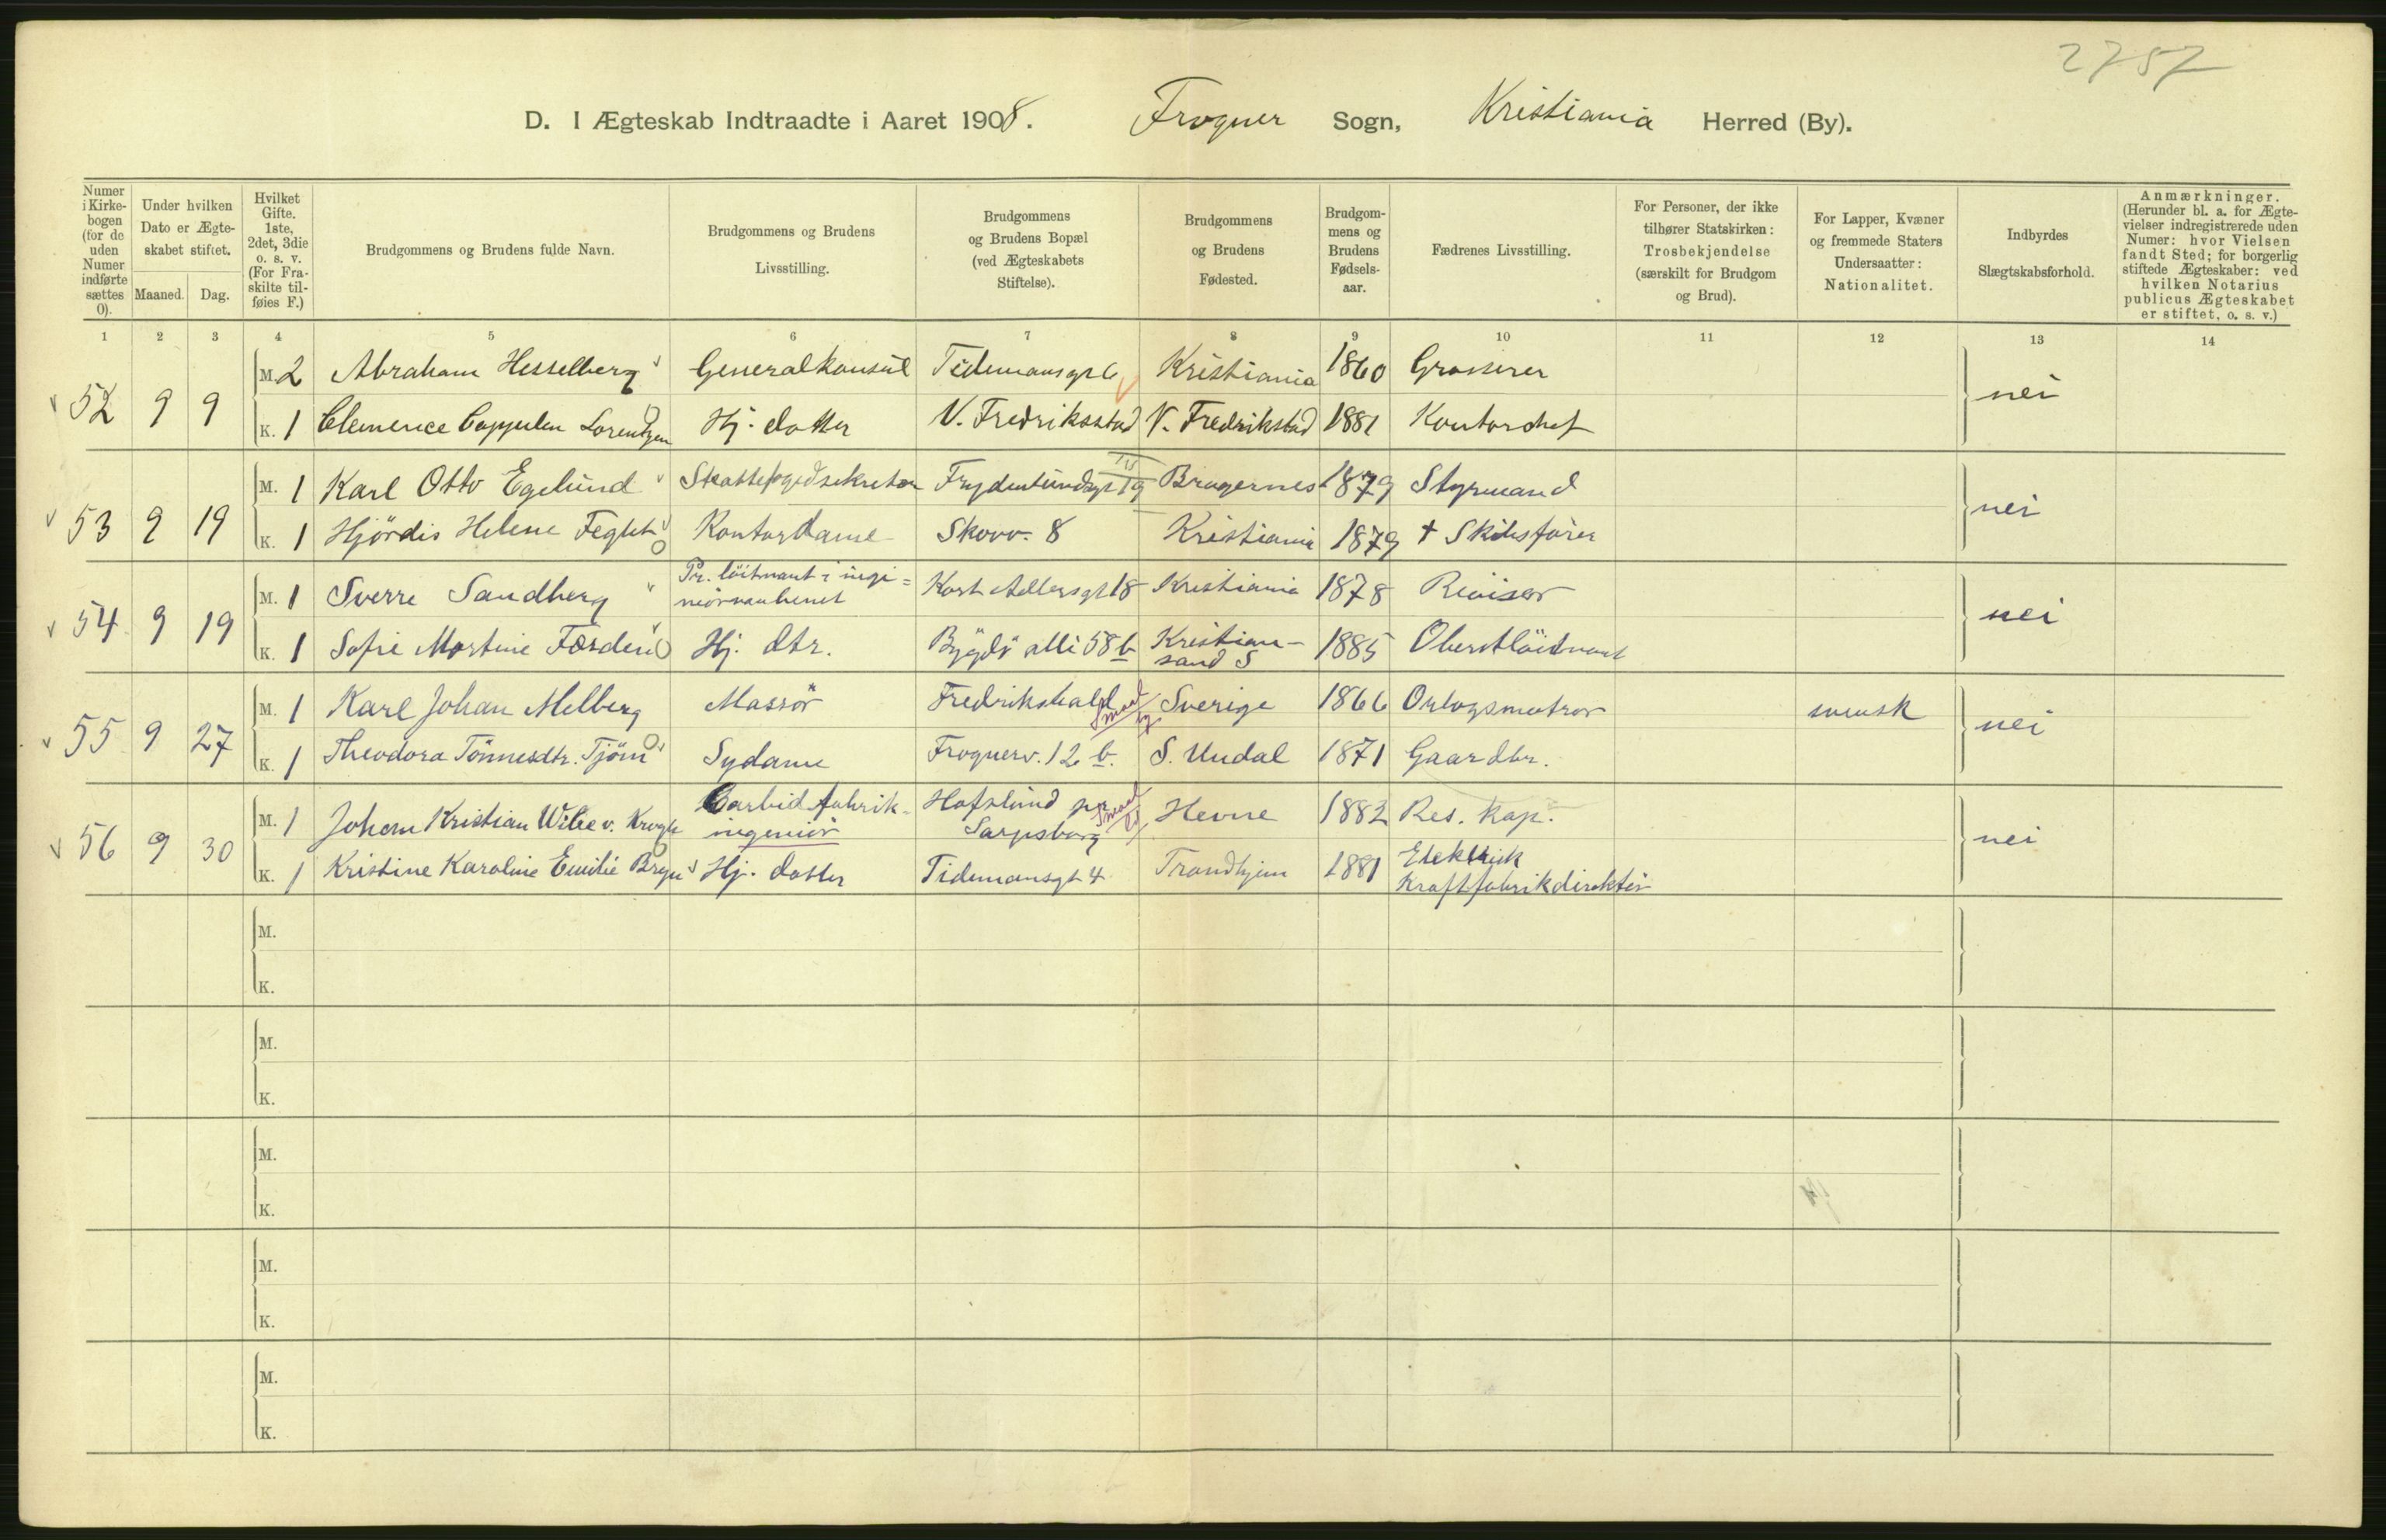 2757
D. I Ægteskab Indtraadte i Aaret 1908. Frogner Sogn, Kristiania Herred (By).
Numer i Kirkebogen (for de uden Numer indførte sættes 0).
Under hvilken Dato er Ægteskabet stiftet.
Maaned. Dag.
Hvilket Gifte. 1ste, 2det, 3die o. s. v. (For Fraskilte tilføies F.)
Brudgommens og Brudens fulde Navn.
Brudgommens og Brudens Livsstilling.
Brudgommens og Brudens Bopæl (ved Ægteskabets Stiftelse).
Brudgommens og Brudens Fødested.
Brudgommens og Brudens Fødselsaar.
Fædrenes Livsstilling.
For Personer, der ikke tilhører Statskirken: Trosbekjendelse (særskilt for Brudgom og Brud).
For Lapper, Kvæner og fremmede Staters Undersaatter: Nationalitet.
Indbyrdes Slægtskabsforhold.
Anmærkninger. (Herunder bl. a. for Ægtevielser indregistrerede uden Numer: hvor Vielsen fandt Sted; for borgerlig stiftede Ægteskaber: ved hvilken Notarius publicus Ægteskabet er stiftet, o. s. v.)
1 2 3 4 5 6 7 8 9 10 11 12 13 14
M. 2 Abraham Hesselberg Generalkonsul Tidemansgt 6 Kristiania 1860 Grosserer
52 9 9 nei
K. 1 Clemence Cappelen Lorentzen Hj. datter V. Fredriksstad V. Fredrikstad 1881 Kontorchef
M. 1 Karl Otto Egelund Skattefogdsekretær Frydenlundsgt 19 Bragernes 1879 Styrmand
53 9 19 nei
K. 1 Hjördis Helene Feght Kontordame Skovv. 8 Kristiania 1879 † Skibsfører
M. 1 Sverre Sandberg Pr. löitnant i ingeniörvaabenet Kort Adlersgt 18 Kristiania 1878 Revisor
54 9 19 nei
K. 1 Sofie Martine Færden Hj. dtr. Bygdö alle 58 b Kristiansand S 1885 Oberstlöitnant
M. 1 Karl Johan Melberg Massör Fredrikshald Sverige 1866 Orlogsmatros svensk
55 9 27 nei
K. 1 Theodora Tönnesdtr. Tjöm Sydame Frognerv. 12 b. S. Undal 1871 Gaardbr.
M. 1 Johan Kristian Wibe v. Krogh Carbidfabrikingeniör Hafslund pr Sarpsborg Hevne 1882 Res. kap.
56 9 30 nei
K. 1 Kristine Karoline Emilie Bryn Hj. datter Tidemansgt 4 Trondhjem 1881 Elektrisk Kraftfabrikdirektör
M.
K.
M.
K.
M.
K.
M.
K.
M.
K.